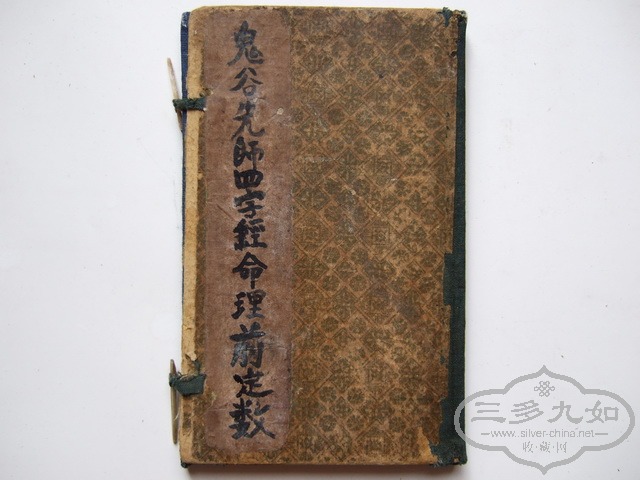 鬼谷先師四字經命理前定数
三多九如
www.silver-china.net
收·藏·网